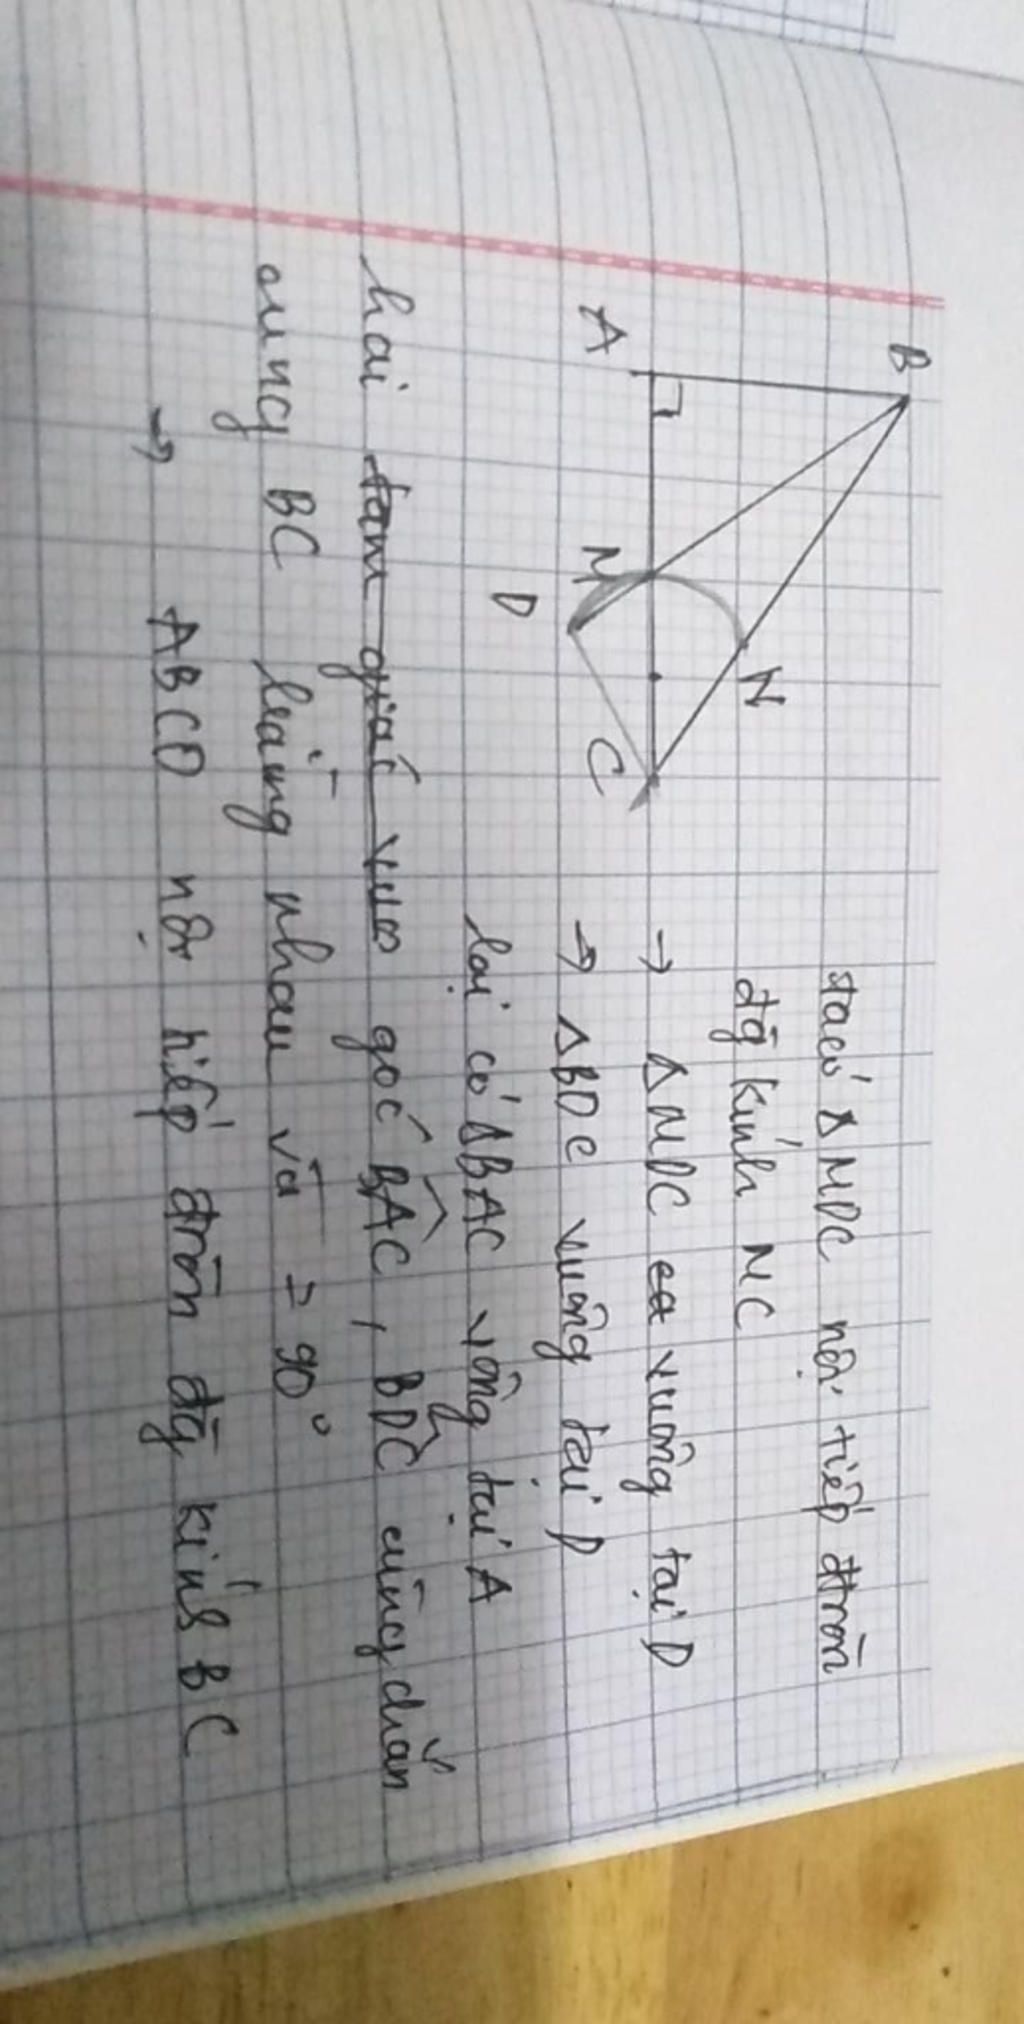 B
A
M
N
D
C
ta có Δ MDC nội tiếp đtròn
đg kính MC
→ Δ MDC vuông tại D
→ Δ BDC vuông tại D
lại có Δ BAC vông tại A
hai tam giác vuo góc BAC, BDC cùng chắn
cung BC bằng nhau và = 90°
→ ABCD nội tiếp đtròn đg kính BC